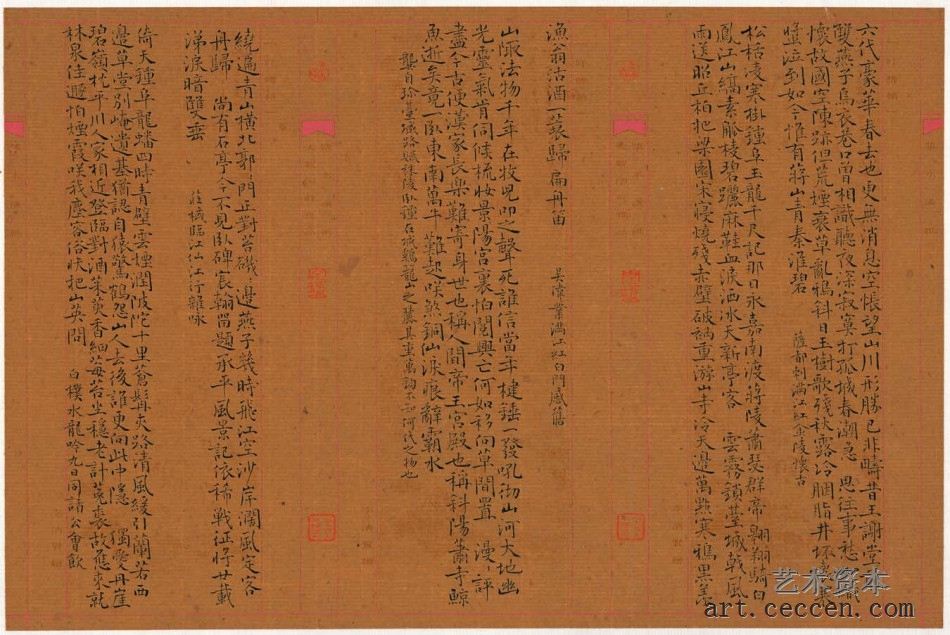 六代豪華春去也更無消息空悵望山川形勝已非疇昔王謝堂前
雙燕子烏衣巷口曾相識聽夜深寂寞打孤城春潮急 思往事愁如織
懷故國空陳跡但荒煙衰草亂鴉斜日玉樹歌殘秋露冷胭脂井壞寒
螿泣到如今惟有蔣山青秦淮碧 薩都剌滿江紅金陵懷古
松栝凌寒掛鍾阜玉龍千尺記那日永嘉南渡蔣陵蕭瑟群帝翱翔騎白
鳳江山縞素觚棱碧躧麻鞋血淚洒冰天新亭客 雲霧鎖臺城戟風
雨送昭丘柏把梁園宋寢燒殘赤壁破衲重游山寺冷天邊萬點寒鴉黑羨
漁翁沽酒一蓑歸扁舟笛 吳偉業滿江紅白門感舊
山陬法物千年在牧兒叩之聲死誰信當年楗錘一發吼彻山河大地幽
光靈氣肯伺候梳妝景陽宮裏怕閱興亡何如移向草間置 漫漫評
盡今古便漢家長樂難寄身世也稱人間帝王宮殿也稱斜陽蕭寺鯨
魚逝矣竟一臥東南萬牛難起咲煞銅仙淚痕辭霸水
龔自珍臺城路賦秣陵臥鐘在城鷄籠山之麓其重萬鈞不知何代之物也
繞遍青山橫北郭門正對苔磯磯邊燕子幾時飛江空沙岸濶風定客
舟歸 尚有石亭今不見臥碑宸翰留題承平風景記依稀戰征將廿載
涕淚暗雙垂 莊棫臨江仙江行雜咏
倚天鍾阜龍蟠四時青壁雲煙潤陂陀十里蒼髯夾路清風緩引蘭若西
邊草堂別崦遺基猶認自猿驚鶴怨山人去後誰更向此中隱 獨愛丹崖
碧嶺枕平川人家相近登臨對酒茱萸香細莓苔坐穩老計菟裘故應來就
林泉住遯怕煙霞咲我塵容俗狀把山英問 白樸水龍吟九日同諸公會飲
艺术资本
art.ceccen.com